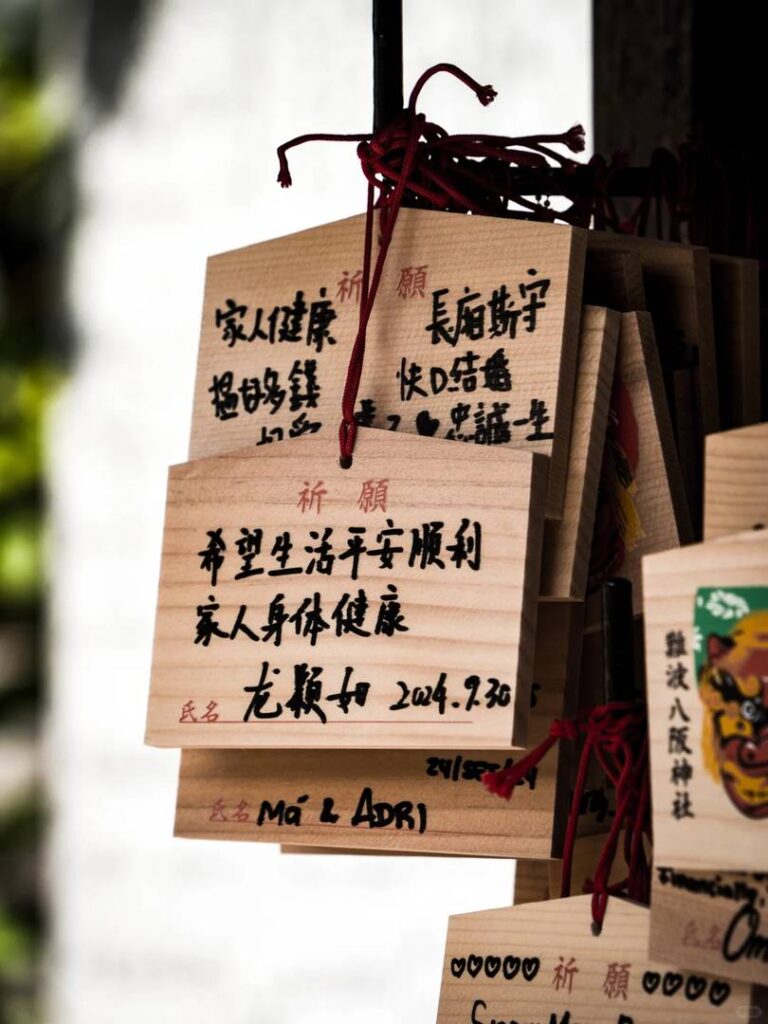 祈 願
家人健康
搵好多錢
長廂廝守
快D結婚
忠誠一生
祈 願
希望生活平安顺利
家人身体健康
氏名 龙颖如 2024.9.30
29/SEP/24
氏名 Má & ADRI
難波八阪神社
Financially,
氏名
祈 願